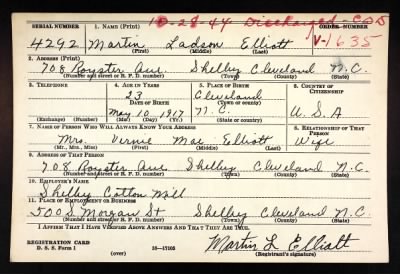 10-28-44 Discharged-CDD
SERIAL NUMBER 1. NAME (Print) ORDER NUMBER
4292 Martin Ladson Elliott V-1635
(First) (Middle) (Last)
2. ADDRESS (Print)
708 Royster Ave. Shelby Cleveland N.C.
(Number and street or R. F. D. number) (Town) (County) (State)
3. TELEPHONE 4. AGE IN YEARS 5. PLACE OF BIRTH 6. COUNTRY OF CITIZENSHIP
23 Cleveland
DATE OF BIRTH (Town or county)
May 10, 1917 N.C. U.S.A
(Exchange) (No.) (Mo.) (Day) (Yr.) (State or country)
7. NAME OF PERSON WHO WILL ALWAYS KNOW YOUR ADDRESS 8. RELATIONSHIP OF THAT PERSON
Mrs. Vernie Mae Elliott Wife
(Mr., Mrs., Miss) (First) (Middle) (Last)
9. ADDRESS OF THAT PERSON
708 Royster Ave. Shelby Cleveland N.C.
(Number and street or R. F. D. number) (Town) (County) (State)
10. EMPLOYER'S NAME
Shelby Cotton Mill
11. PLACE OF EMPLOYMENT OR BUSINESS
500 S. Morgan St Shelby Cleveland N.C.
(Number and street or R. F. D. number) (Town) (County) (State)
I AFFIRM THAT I HAVE VERIFIED ABOVE ANSWERS AND THAT THEY ARE TRUE.
REGISTRATION CARD
D. S. S. Form 1 16—17105 Martin L Elliott
(over) (Registrant's signature)